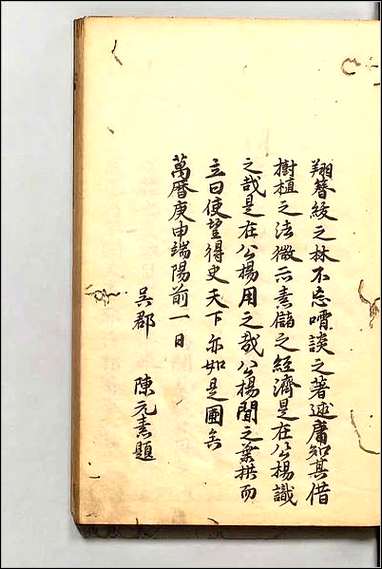 翔簪綬之林不忘嘖談之著述庸知其借
樹植之法微示素儲之經濟是在公楊識
之哉是在公楊用之哉公楊聞之葉拱而
立曰使望得史天下亦如是圃矣
萬曆庚申端陽前一日
吳郡 陳元素題